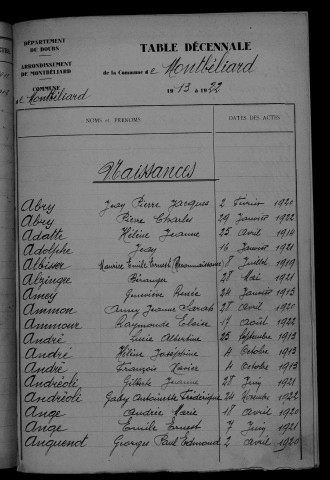 DÉPARTEMENT
DU DOUBS
ARRONDISSEMENT
DE MONTBÉLIARD
COMMUNE
de Montbéliard
TABLE DÉCENNALE
de la Commune de Montbéliard
1913 à 1922
NOMS et PRÉNOMS
DATES DES ACTES
Naissances
Abry Jean Pierre Jacques 2 Février 1920
Abry Pierre Charles 29 Janvier 1922
Adatte Hélène Jeanne 25 Avril 1914
Adolphe Jean 16 Janvier 1921
Albiser Maurice Emile Ernest (Reconnaissance) 8 Juillet 1919
Alzingre Bérangère 28 Mai 1921
Amey Geneviève Renée 24 Janvier 1913
Ammon Anny Jeanne Sarah 28 Avril 1920
Ammour Raymonde Eloïse 17 Août 1922
André Lucie Albertine 23 Septembre 1913
André Hélène Joséphine 4 Octobre 1913
André François Xavier 4 Octobre 1913
Andréoli Gilberte Jeanne 28 Juin 1921
Andréoli Gaby Antoinette Frédérique 24 Novembre 1922
Ange Andrée Marie 18 Avril 1920
Ange Emile Ernest 7 Juin 1921
Anguenot Georges Paul Edmond 2 Avril 1920